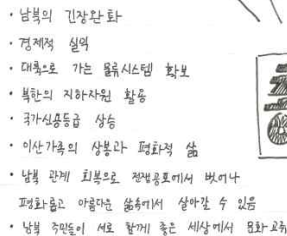 · 남북의 긴장완화
· 경제적 실익
· 대륙으로 가는 물류시스템 확보
· 북한의 지하자원 활용
· 국가신용등급 상승
· 이산가족의 상봉과 평화적 삶
· 남북 관계 회복으로 전쟁공포에서 벗어나
평화롭고 아름다운 삶속에서 살아갈 수 있음
· 남북 주민들이 서로 함께 좋은 세상에서 문화교취